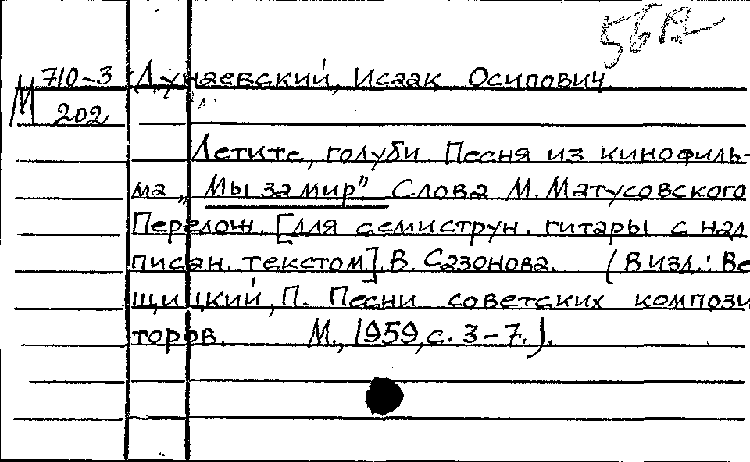 56В
М 710-3 Дунаевский, Исаак Осипович.
202
Летите, голуби. Песня из кинофиль-
ма „Мы за мир". Слова М. Матусовского
Перелож. [для семиструн. гитары с над
писан. текстом] В. Сазонова. (В изд.: Ве
щицкий, П. Песни советских компози
торов. М., 1959, с. 3-7.).